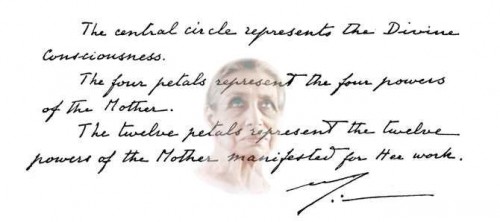 The central circle represents the Divine
Consciousness.
The four petals represent the four powers
of the Mother.
The twelve petals represent the twelve
powers of the Mother manifested for Her work.